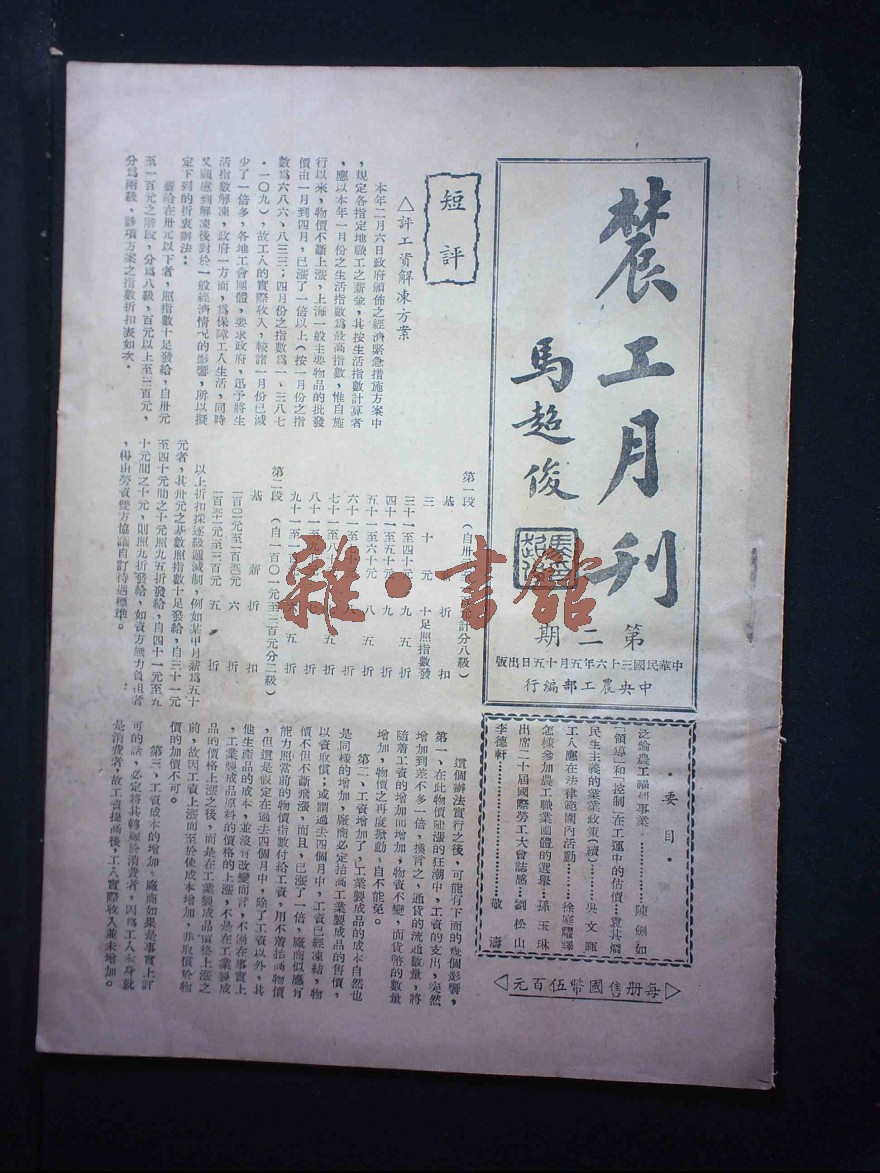 農工月刊
馬超俊
第二期
中華民國三十六年五月十五日出版
中央農工部編行
要目
泛論農工福利事業……陳劍如
「領導」和「控制」在工運中的估價…袁其炯
民生主義的業業政策(續)……吳文暉
工人應在法律範圍內活動……徐庭耀譯
怎樣參加農工職業團體的選舉…孫玉琳
出席二十屆國際勞工大會誌感…劉松山
李德軒……敬濤
每册售國幣伍百元
短評
△評工資解凍方案
本年二月六日政府頒佈之經濟緊急措施方案中
,規定各指定地職工之薪金,其按生活指數計算者
,應以本年一月份之生活指數爲最高指數,惟自施
行以來,物價不斷上漲,上海一般主要物品的批發
價由一月到四月,已漲了一倍以上(按一月份之指
數爲六八六、八三三;四月份之指數爲一、三八七
.一〇九),故工人的實際收入,較諸一月份已減
少了一倍多,各地工會團體,要求政府,迅予將生
活指數解凍,政府一方面,爲保障工人生活,同時
又顧慮到解凍後對於一般經濟情況的影響,所以擬
定下列的折衷辦法:
薪給在卅元以下者,照指數十足發給,自卅元
至一百元之階段,分爲八級,百元以上至三百元,
分爲兩級,該項方案之指數折扣表如次.
第一段(自卅計分八級)
基 折扣
三十元 十足照指數發
三十一至四十元 九五折
四十一至五十元 九
五十一至六十元 八五折
六十一至七十
七十一至八十
八十一至九十 折
九十一至一 五折
第二段(自一百〇一元至三百元分二級)
基薪 折扣
一百〇一元至一百五十元 六折
一百五十一元至三百元 五折
以上折扣採逐級遞減制,例如某甲月薪爲五十
元者,其卅元之基數照指數十足發給,自三十一元
至四十元間之十元照九五折發給,自四十一元至五
十元間之十元,則照九折發給,如資方無力負担者
,得由勞資雙方協議自訂待遇標準。
這個辦法實行之後,可能有下面的幾個影響,
第一、在此物價陡漲的狂潮中,工資的支出,突然
增加到差不多一倍,換言之,通貨的流通數量,將
隨着工資的增加而增加,物資不變,而貨幣的數量
增加,物價之再度掀動,自不能免。
第二、工資增加了,工業製成品的成本自然也
是同樣的增加,廠商必定抬高工業製成品的售價,
以資取償;或謂過去四個月中,工資已經凍結,物
價不但不斷飛漲,而且,已漲了一倍,廠商似應有
能力照當前的物價指數付給工資,用不着抬高物價
,但這是假定在過去四個月中,除了工資以外,其
他生產品的成本,並沒有改變而言,不過在事實上
,工業製成品原料的價格的上漲,不是在工業製成
品的價格上漲之後,而是在工業製成品價格上漲之
前,故因工資上漲而至於使成本增加,非取償於物
價的加價不可。
第三、工資成本的增加,廠商如果是事實上許
可的話,必定將其轉嫁於消費者,因爲工人本身就
是消費者,故工資提高後,工人實際收入並未增加。
雜·書館